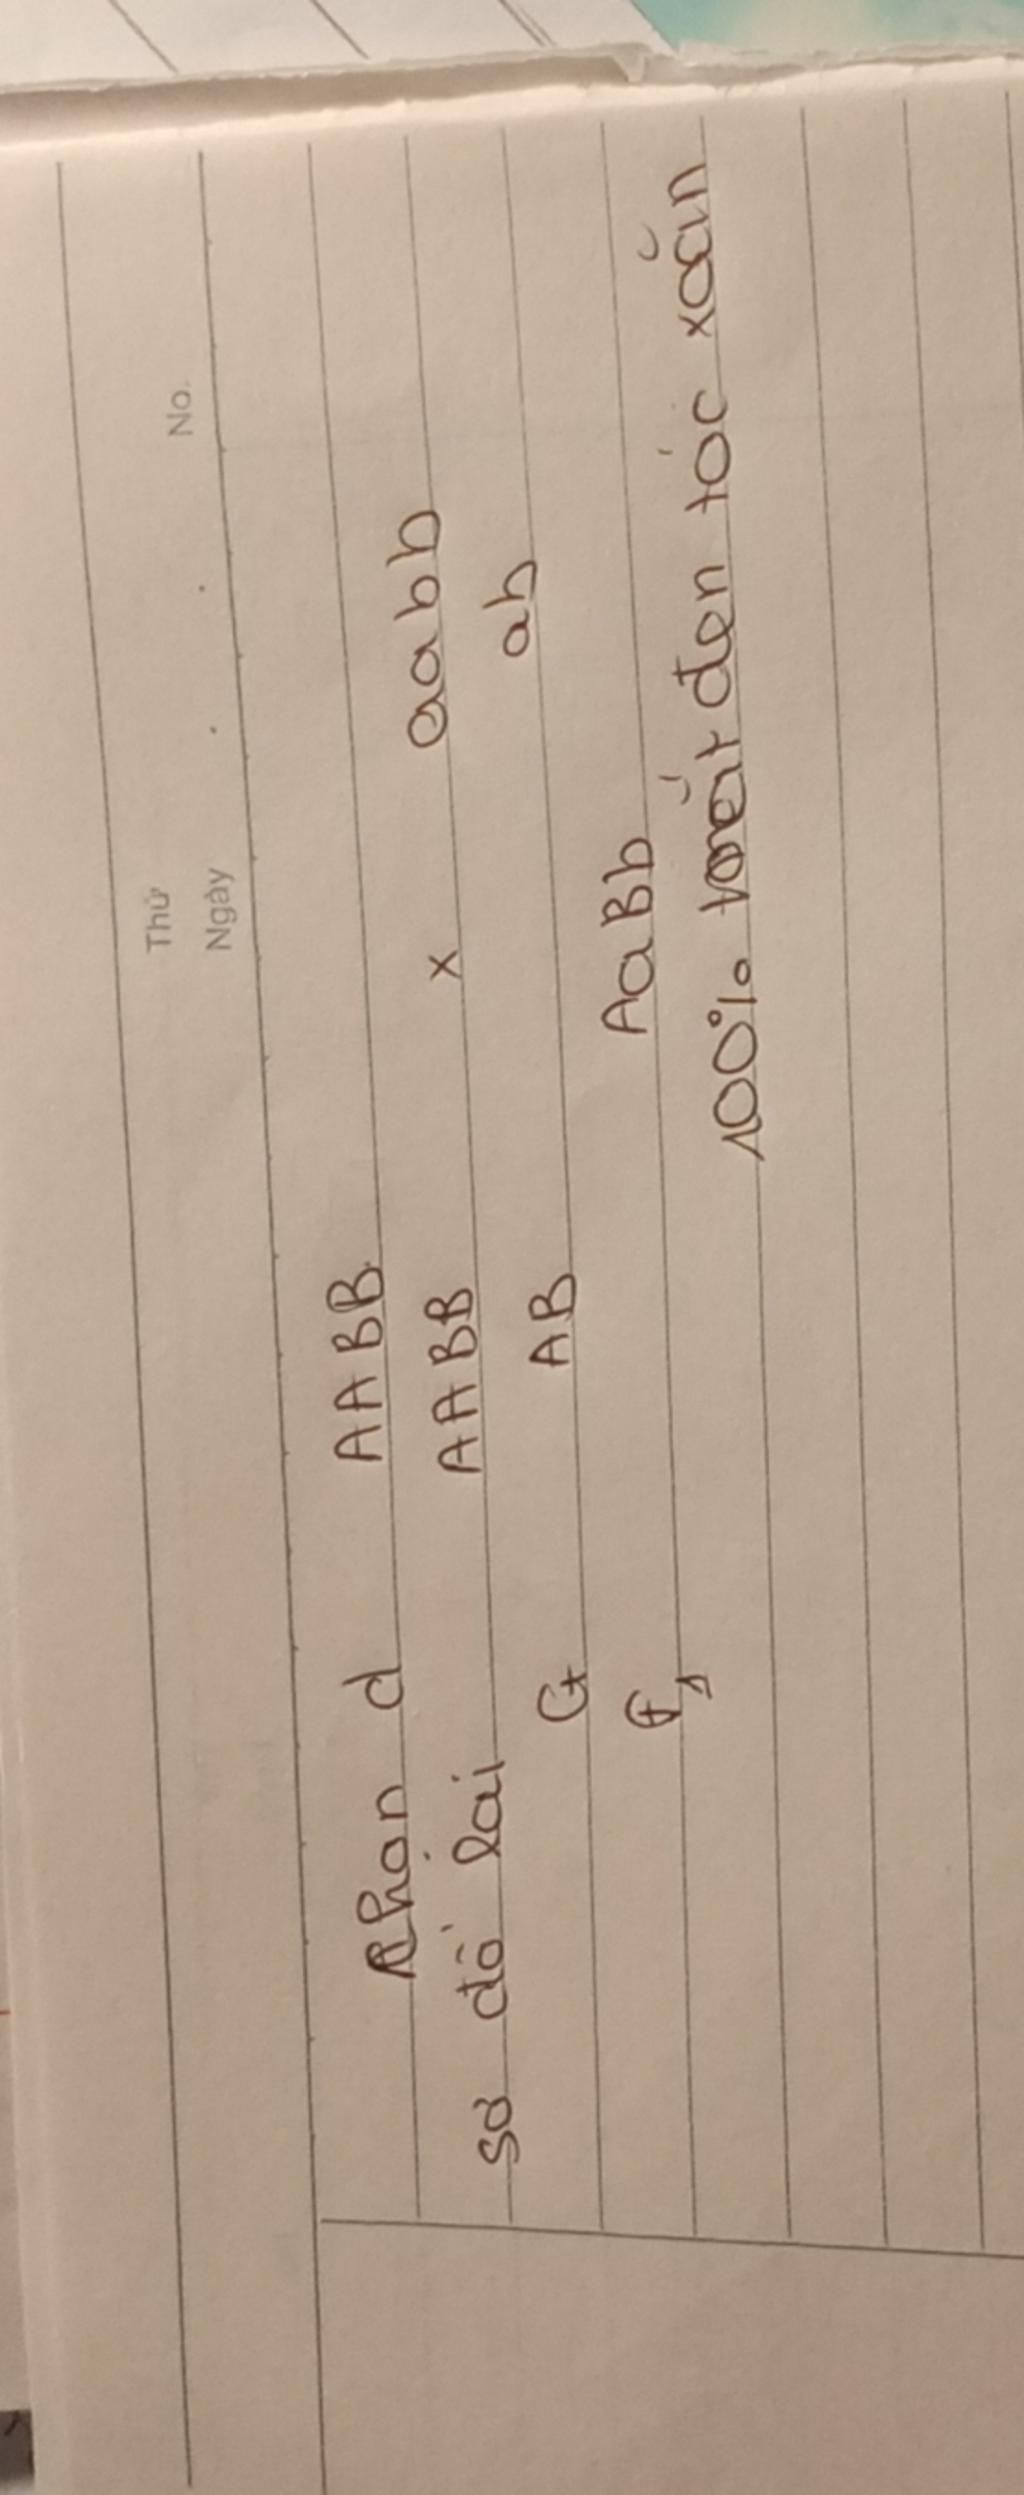 Thứ
Ngày No.
Phán d AABB
sơ đồ lai AABB x aabb
G AB ab
F1 AaBb
100% mắt đen tóc xoăn